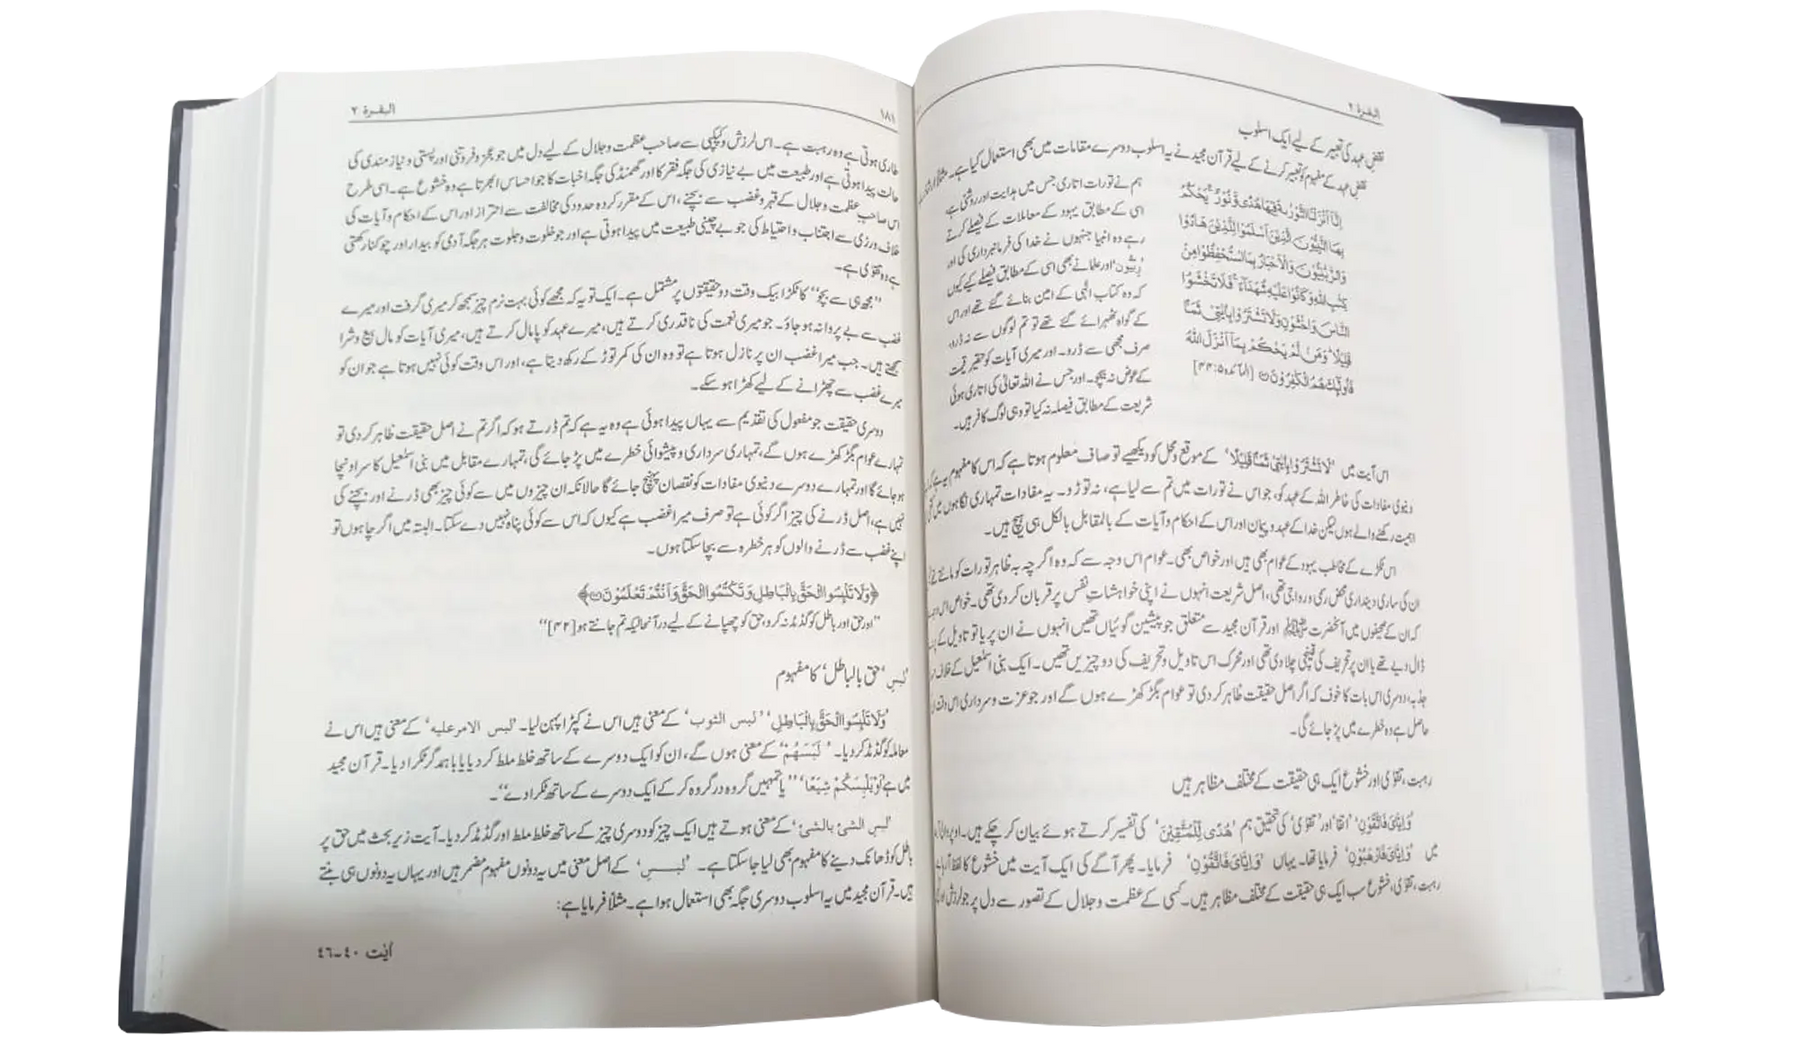 البقرة ٢
نقضِ عہد کی تعبیر کے لیے ایک اسلوب
نقضِ عہد کے مفہوم کو تعبیر کرنے کے لیے قرآن مجید نے یہ اسلوب دوسرے مقامات میں بھی استعمال کیا ہے۔ مثلاً
اِنَّآ اَنْزَلْنَا التَّوْرٰىةَ فِيْهَا هُدًى وَّنُوْرٌ ۚ يَحْكُمُ
بِهَا النَّبِيُّوْنَ الَّذِيْنَ اَسْلَمُوْا لِلَّذِيْنَ هَادُوْا
وَالرَّبّٰنِيُّوْنَ وَالْاَحْبَارُ بِمَا اسْتُحْفِظُوْا مِنْ
كِتٰبِ اللّٰهِ وَكَانُوْا عَلَيْهِ شُهَدَآءَ ۚ فَلَا تَخْشَوُا
النَّاسَ وَاخْشَوْنِ وَلَا تَشْتَرُوْا بِاٰيٰتِيْ ثَمَنًا
قَلِيْلًا ۭ وَمَنْ لَّمْ يَحْكُمْ بِمَآ اَنْزَلَ اللّٰهُ
فَاُولٰٓئِكَ هُمُ الْكٰفِرُوْنَ [المآئدہ ٥:٤٤]
ہم نے تورات اتاری جس میں ہدایت اور روشنی ہے،
اسی کے مطابق یہود کے معاملات کے فیصلے کرتے
رہے وہ انبیا جنہوں نے خدا کی فرمانبرداری کی اور
ربّیّون، اور علما نے بھی اسی کے مطابق فیصلے کیے کیوں
کہ وہ کتاب الٰہی کے امین بنائے گئے تھے اور اس
کے گواہ ٹھہرائے گئے تھے تو تم لوگوں سے نہ ڈرو،
صرف مجھی سے ڈرو۔ اور میری آیات کو حقیر قیمت
کے عوض نہ بیچو۔ اور جس نے اللہ تعالیٰ کی اتاری ہوئی
شریعت کے مطابق فیصلہ نہ کیا تو وہی لوگ کافر ہیں۔
اس آیت میں ’لَا تَشْتَرُوْا بِاٰيٰتِيْ ثَمَنًا قَلِيْلًا‘ کے موقع و محل کو دیکھیے تو صاف معلوم ہوتا ہے کہ اس کا مفہوم یہ ہے کہ
دنیوی مفادات کی خاطر اللہ کے عہد کو، جو اس نے تورات میں تم سے لیا ہے، نہ توڑو۔ یہ مفادات تمہاری نگاہوں میں کتنی
اہمیت رکھنے والے ہوں لیکن خدا کے عہد و پیمان اور اس کے احکام و آیات کے بالمقابل بالکل ہی ہیچ ہیں۔
اس ٹکڑے کے مخاطب یہود کے عوام بھی ہیں اور خواص بھی۔ عوام اس وجہ سے کہ وہ اگرچہ بہ ظاہر تورات کو مانتے تھے
ان کی ساری دینداری محض رسمی و رواجی تھی، اصل شریعت انہوں نے اپنی خواہشاتِ نفس پر قربان کر دی تھی۔ خواص اس
کہ ان کے صحیفوں میں آنحضرت ﷺ اور قرآن مجید سے متعلق جو پیشین گوئیاں تھیں انہوں نے ان پر یا تو تاویل کے
ڈال دیے تھے یا ان پر تحریف کی قینچی چلا دی تھی اور محرک اس تاویل و تحریف کی دو چیزیں تھیں۔ ایک بنی اسمٰعیل کے خلاف
جذبہ، دوسری اس بات کا خوف کہ اگر اصل حقیقت ظاہر کر دی تو عوام بگڑ کھڑے ہوں گے اور جو عزت و سرداری اس وقت
حاصل ہے وہ خطرے میں پڑ جائے گی۔
رہبت، تقویٰ اور خشوع ایک ہی حقیقت کے مختلف مظاہر ہیں
’وَاِيَّايَ فَاتَّقُوْنِ‘ ’اتقا‘ اور ’تقویٰ‘ کی تحقیق ہم ’هُدًى لِّلْمُتَّقِيْنَ‘ کی تفسیر کرتے ہوئے بیان کر چکے ہیں۔ اوپر والی
میں ’وَاِيَّايَ فَارْهَبُوْنِ‘ فرمایا تھا۔ یہاں ’وَاِيَّايَ فَاتَّقُوْنِ‘ فرمایا۔ پھر آگے کی ایک آیت میں خشوع کا لفظ آ رہا ہے
رہبت، تقویٰ، خشوع سب ایک ہی حقیقت کے مختلف مظاہر ہیں۔ کسی کے عظمت و جلال کے تصور سے دل پر جو لرزش
البقرة ٢
١٨١
طاری ہوتی ہے وہ رہبت ہے۔ اس لرزش و کپکپی سے صاحب عظمت و جلال کے لیے دل میں جو عجز و فروتنی اور پستی و نیازمندی کی
حالت پیدا ہوتی ہے اور طبیعت میں بے نیازی کی جگہ فقر کا اور گھمنڈ کی جگہ اخبات کا جو احساس ابھرتا ہے وہ خشوع ہے۔ اسی طرح
اس صاحب عظمت و جلال کے قہر و غضب سے بچنے، اس کے مقرر کردہ حدود کی مخالفت سے احتراز اور اس کے احکام و آیات کی
خلاف ورزی سے اجتناب و احتیاط کی جو بے چینی طبیعت میں پیدا ہوتی ہے اور جو خلوت و جلوت ہر جگہ آدمی کو بیدار اور چوکنا رکھتی
ہے وہ تقویٰ ہے۔
”مجھ ہی سے بچو“ کا ٹکڑا بیک وقت دو حقیقتوں پر مشتمل ہے۔ ایک تو یہ کہ مجھے کوئی بہت نرم چیز سمجھ کر میری گرفت اور میرے
غضب سے بے پروا نہ ہو جاؤ۔ جو میری نعمت کی ناقدری کرتے ہیں، میرے عہد کو پامال کرتے ہیں، میری آیات کو مال بیع و شرا
سمجھتے ہیں۔ جب میرا غضب ان پر نازل ہوتا ہے تو وہ ان کی کمر توڑ کے رکھ دیتا ہے، اور اس وقت کوئی نہیں ہوتا ہے جو ان کو
میرے غضب سے چھڑانے کے لیے کھڑا ہو سکے۔
دوسری حقیقت جو مفعول کی تقدیم سے یہاں پیدا ہوئی ہے وہ یہ ہے کہ تم ڈرتے ہو کہ اگر تم نے اصل حقیقت ظاہر کر دی تو
تمہارے عوام بگڑ کھڑے ہوں گے، تمہاری سرداری و پیشوائی خطرے میں پڑ جائے گی، تمہارے مقابل میں بنی اسمٰعیل کا سر اونچا
ہو جائے گا اور تمہارے دوسرے دنیوی مفادات کو نقصان پہنچ جائے گا حالانکہ ان چیزوں میں سے کوئی چیز بھی ڈرنے اور بچنے کی
نہیں ہے، اصل ڈرنے کی چیز اگر کوئی ہے تو صرف میرا غضب ہے کیوں کہ اس سے کوئی پناہ نہیں دے سکتا۔ البتہ میں اگر چاہوں تو
اپنے غضب سے ڈرنے والوں کو ہر خطرہ سے بچا سکتا ہوں۔
﴿وَلَا تَلْبِسُوا الْحَقَّ بِالْبَاطِلِ وَتَكْتُمُوا الْحَقَّ وَاَنْتُمْ تَعْلَمُوْنَ﴾
”اور حق اور باطل کو گڈمڈ نہ کرو، حق کو چھپانے کے لیے درآنحالیکہ تم جانتے ہو [٤٢]“
’لبسِ‘ ’حق بالباطل‘ کا مفہوم
’وَلَا تَلْبِسُوا الْحَقَّ بِالْبَاطِلِ‘ ’لبس الثوب‘ کے معنی ہیں اس نے کپڑا پہن لیا۔ ’لبس الامر عليه‘ کے معنی ہیں اس نے
معاملہ کو گڈمڈ کر دیا۔ ’لَبَسَهُمْ‘ کے معنی ہوں گے، ان کو ایک دوسرے کے ساتھ خلط ملط کر دیا یا باہمدگر ٹکرا دیا۔ قرآن مجید
میں ہے ’اَوْ يَلْبِسَكُمْ شِيَعًا‘ ”یا تمہیں گروہ در گروہ کر کے ایک دوسرے کے ساتھ ٹکرا دے“۔
’لبس الشئ بالشئ‘ کے معنی ہوتے ہیں ایک چیز کو دوسری چیز کے ساتھ خلط ملط اور گڈمڈ کر دیا۔ آیت زیر بحث میں حق پر
باطل کو ڈھانک دینے کا مفہوم بھی لیا جا سکتا ہے۔ ’لبسِ‘ کے اصل معنی میں یہ دونوں مفہوم مضمر ہیں اور یہاں یہ دونوں ہی بنتے
ہیں۔ قرآن مجید میں یہ اسلوب دوسری جگہ بھی استعمال ہوا ہے۔ مثلاً فرمایا ہے:
اٰیت ٤٠-٤٦